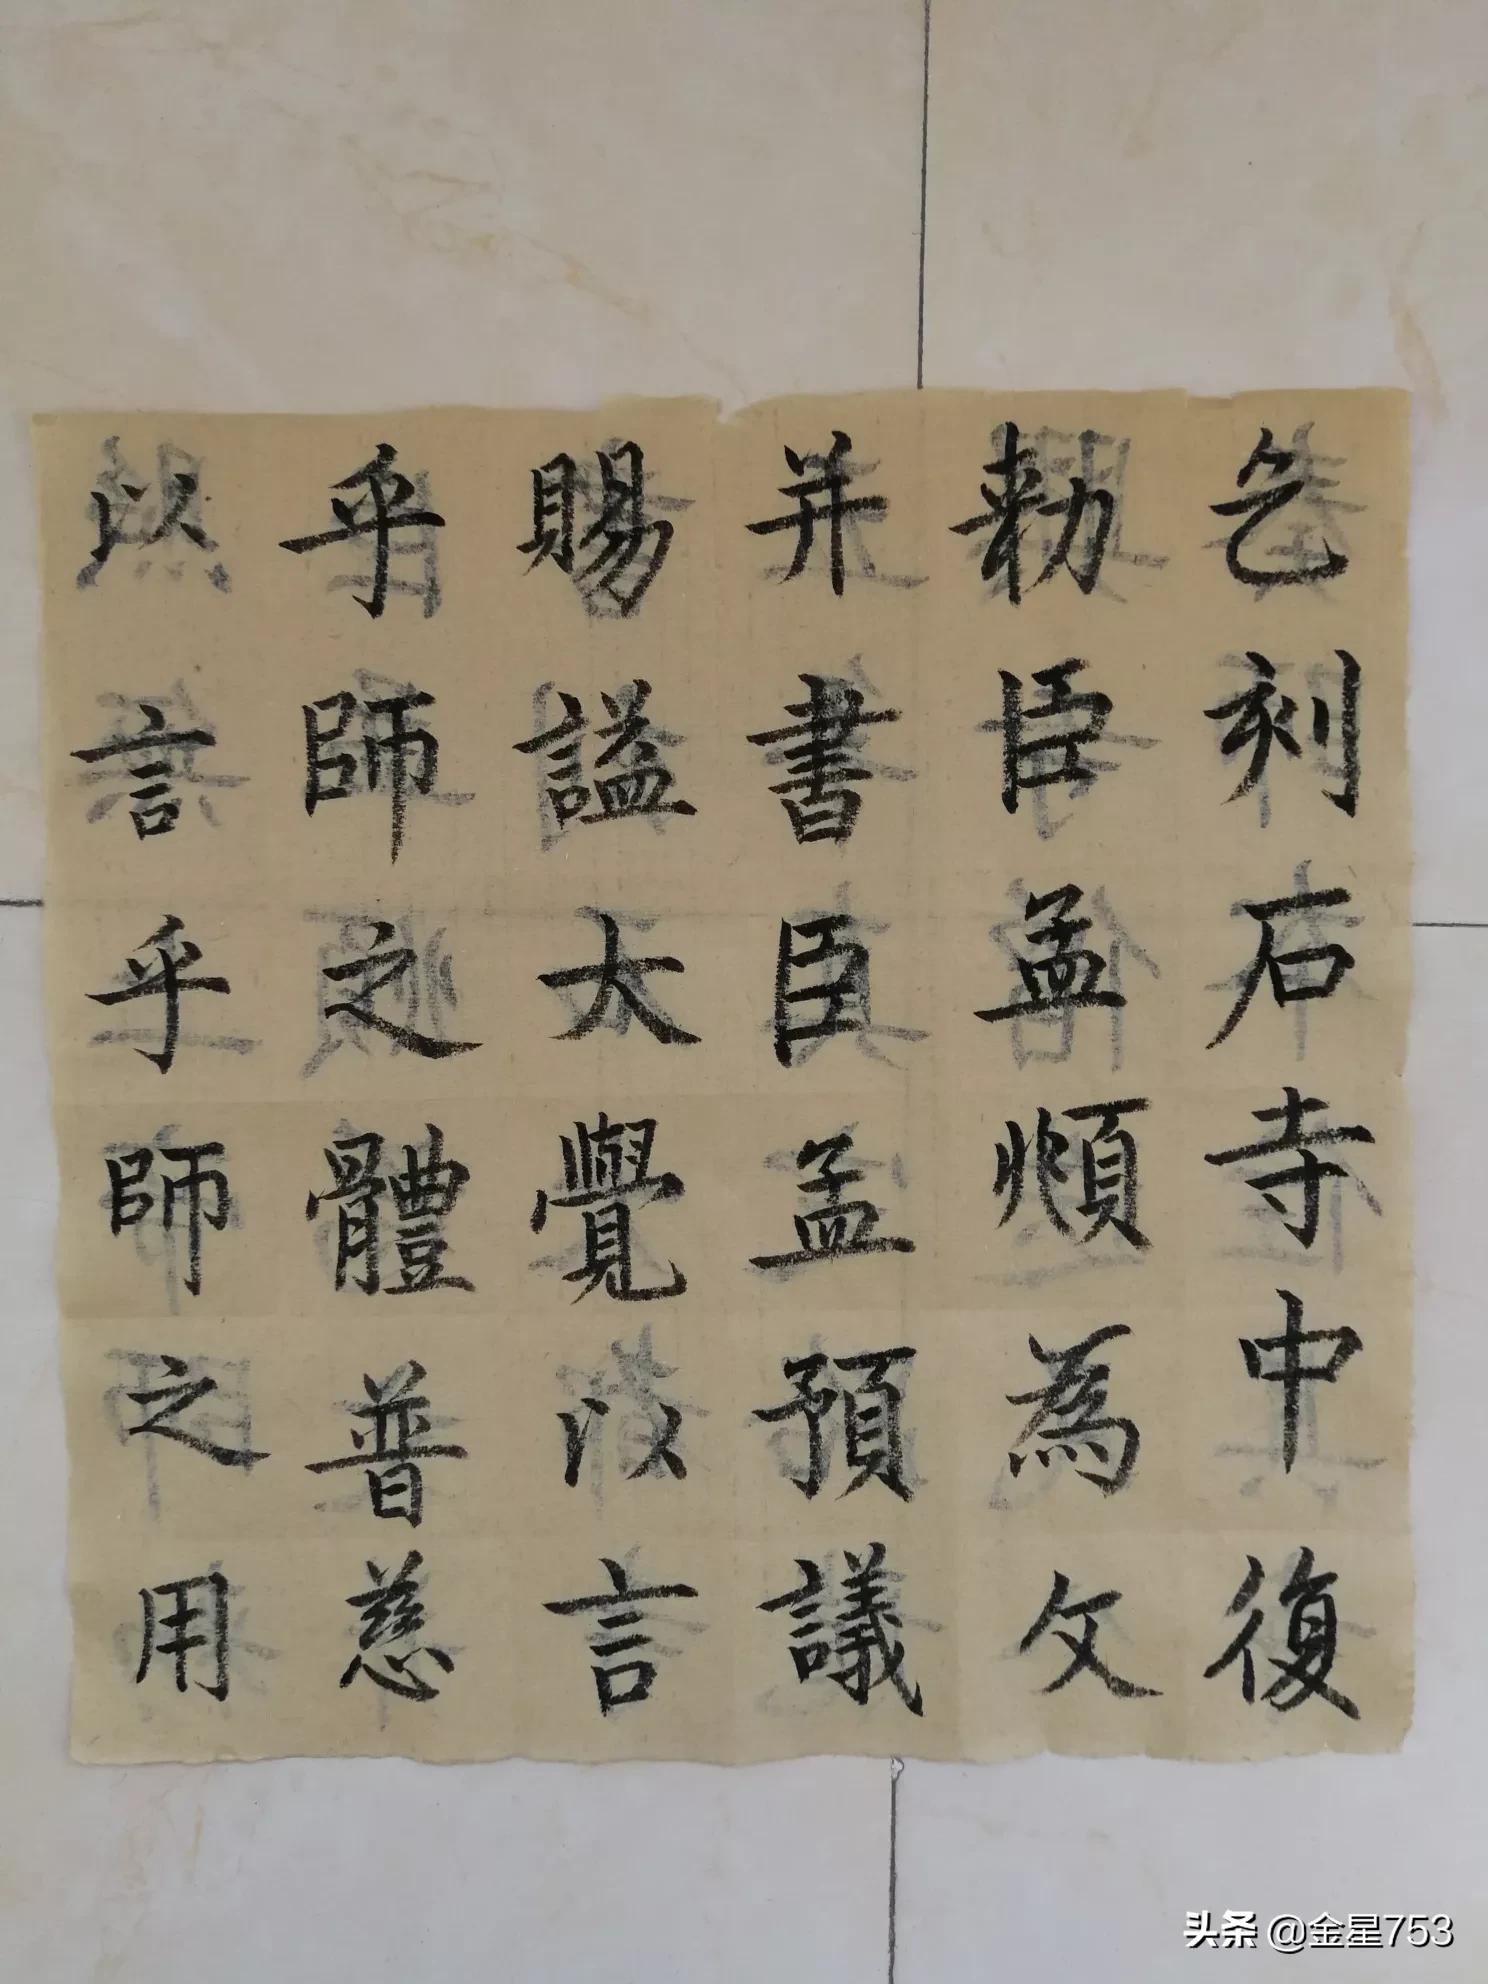 乞刻石寺中復
勑臣孟頫為文
并書臣孟預議
賜謚大覺以言
乎師之體普慈
以言乎師之用
头条 @金星753